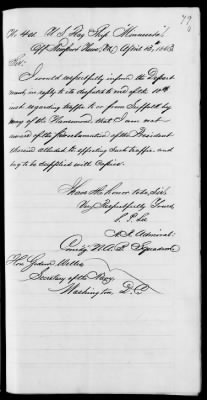 79
No. 421. U. S. Flag Ship "Minnesota"
Off Newport News, Va. April 13, 1863
Sir:
I would respectfully inform the Department, in reply to its despatch of the 10th
inst. regarding traffic to or from Suffolk by
way of the Nansemond that I am not
aware of the Proclamation of the President
therein alluded to affecting such traffic and
beg to be supplied with copies.
I have the honor to be, Sir,
Very Respectfully Yours,
S. P. Lee
A. R. Admiral
Comdg N. A. B. Squadron
Hon Gideon Welles
Secretary of the Navy
Washington, D. C.